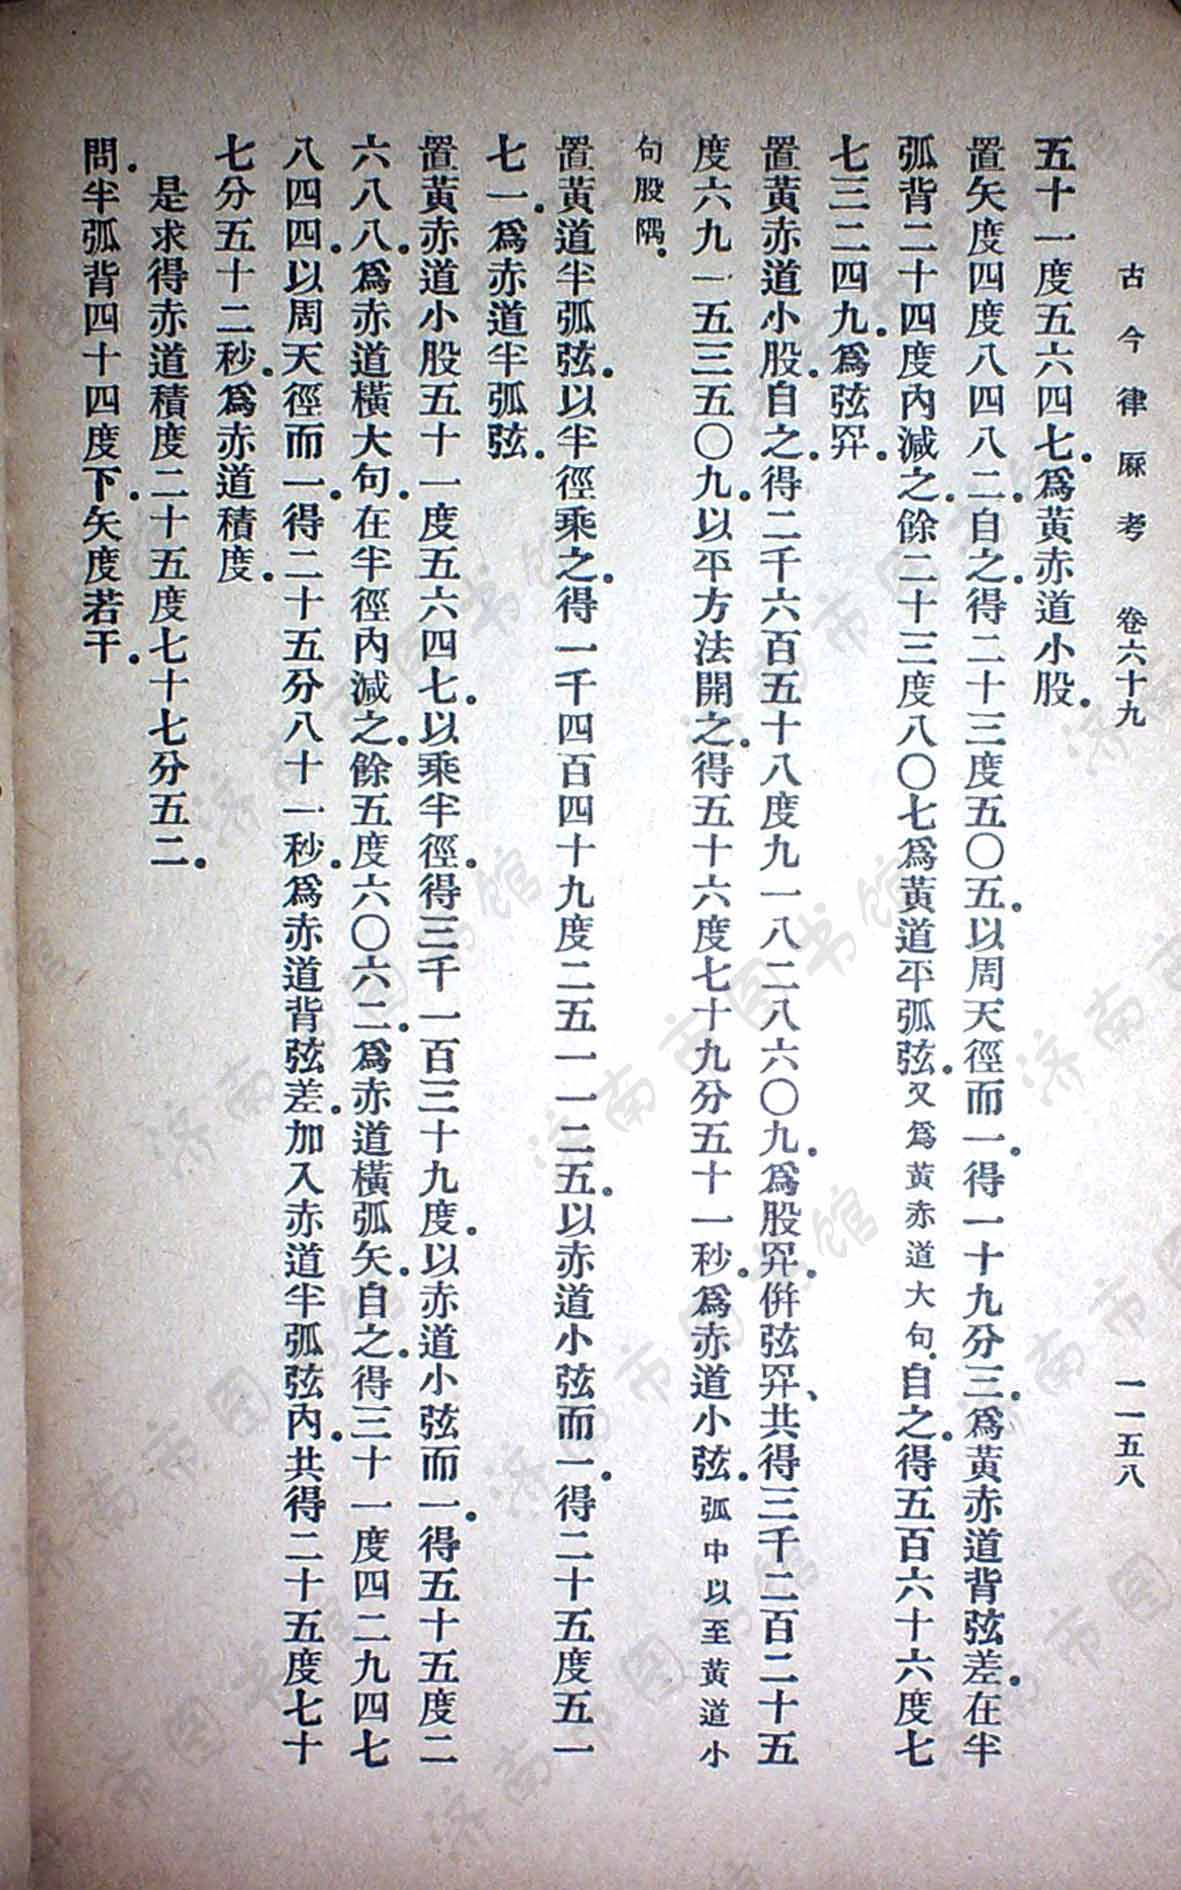 古今律厤考　卷六十九　一一五八
五十一度五六四七。爲黃赤道小股。
置矢度四度八四八二。自之。得二十三度五〇五。以周天徑而一。得一十九分三。爲黃赤道背弦差。在半
弧背二十四度內減之。餘二十三度八〇七爲黃道平弧弦。又爲黃赤道大句。自之。得五百六十六度七
七三二四九。爲弦羃。
置黃赤道小股。自之。得二千六百五十八度九一八二八六〇九。爲股羃。併弦羃、共得三千二百二十五
度六九一五三五〇九。以平方法開之。得五十六度七十九分五十一秒。爲赤道小弦。弧中以至黃道小
句股隅。
置黃道半弧弦。以半徑乘之。得一千四百四十九度二五一一二五。以赤道小弦而一。得二十五度五一
七一。爲赤道半弧弦。
置黃赤道小股五十一度五六四七。以乘半徑。得三千一百三十九度。以赤道小弦而一。得五十五度二
六八八。爲赤道橫大句。在半徑內減之。餘五度六〇六二。爲赤道橫弧矢。自之。得三十一度四二九四七
八四四。以周天徑而一。得二十五分八十一秒。爲赤道背弦差。加入赤道半弧弦內。共得二十五度七十
七分五十二秒。爲赤道積度。
是求得赤道積度二十五度七十七分五二。
問。半弧背四十四度下。矢度若干。
济南市图书馆